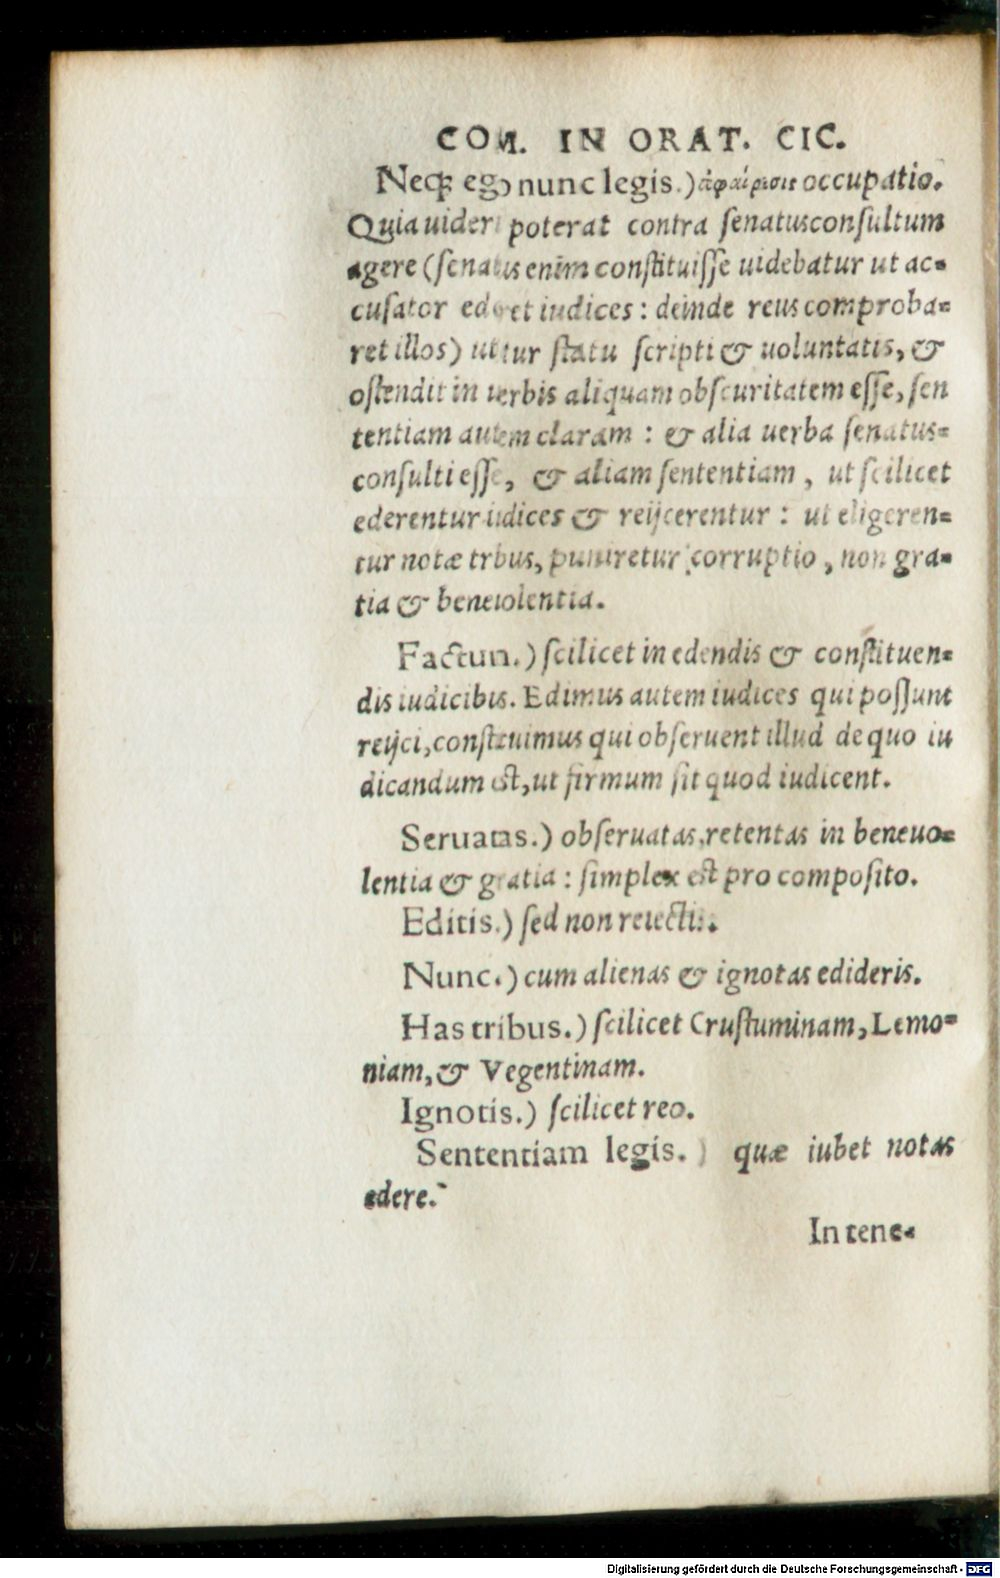 COM. IN ORAT. CIC.
Neqꝫ ego nunc legis.) ἀφαίρισις occupatio.
Quia uideri poterat contra senatusconsultum
agere (senatus enim constituisse uidebatur ut ac=
cusator ederet iudices: deinde reus comproba=
ret illos) utitur statu scripti & uoluntatis, &
ostendit in uerbis aliquam obscuritatem esse, sen
tentiam autem claram: & alia uerba senatus=
consulti esse, & aliam sententiam, ut scilicet
ederentur iudices & reijcerentur: ut eligeren=
tur notæ tribus, puniretur corruptio, non gra=
tia & beneuolentia.
Factum.) scilicet in edendis & constituen=
dis iudicibus. Edimus autem iudices qui possunt
reijci, constituimus qui obseruent illud de quo iu
dicandum est, ut firmum sit quod iudicent.
Seruatas.) obseruatas, retentas in beneuo=
lentia & gratia: simplex est pro composito.
Editis.) sed non reiectis.
Nunc.) cum alienas & ignotas edideris.
Has tribus.) scilicet Crustuminam, Lemo=
niam, & Vegentinam.
Ignotis.) scilicet reo.
Sententiam legis.) quæ iubet notas
edere.
In tene=
Digitalisierung gefördert durch die Deutsche Forschungsgemeinschaft - DFG